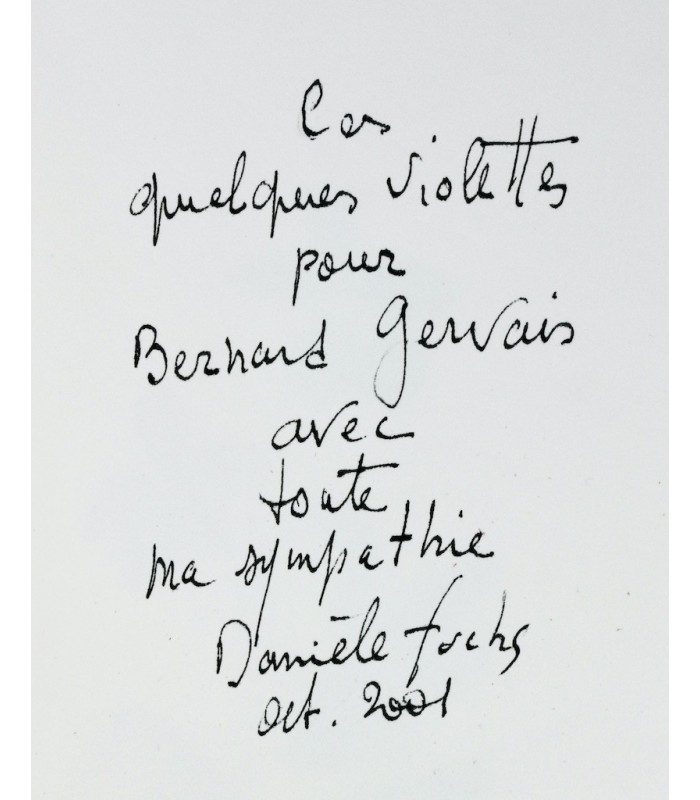 Ces
quelques violettes
pour
Bernard Gervais
avec
toute
ma sympathie
Danièle Fuchs
oct. 2001